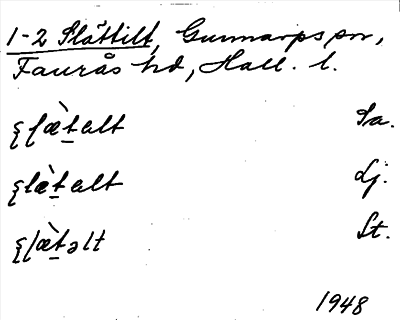 1-2 Slättilt, Gunnarps sn,
Faurås hd, Hall. l.
ʂlæ̀t̲alt Sa.
ʂlæ̀t̲alt Lj.
ʂlæ̀t̲əlt St.
1948